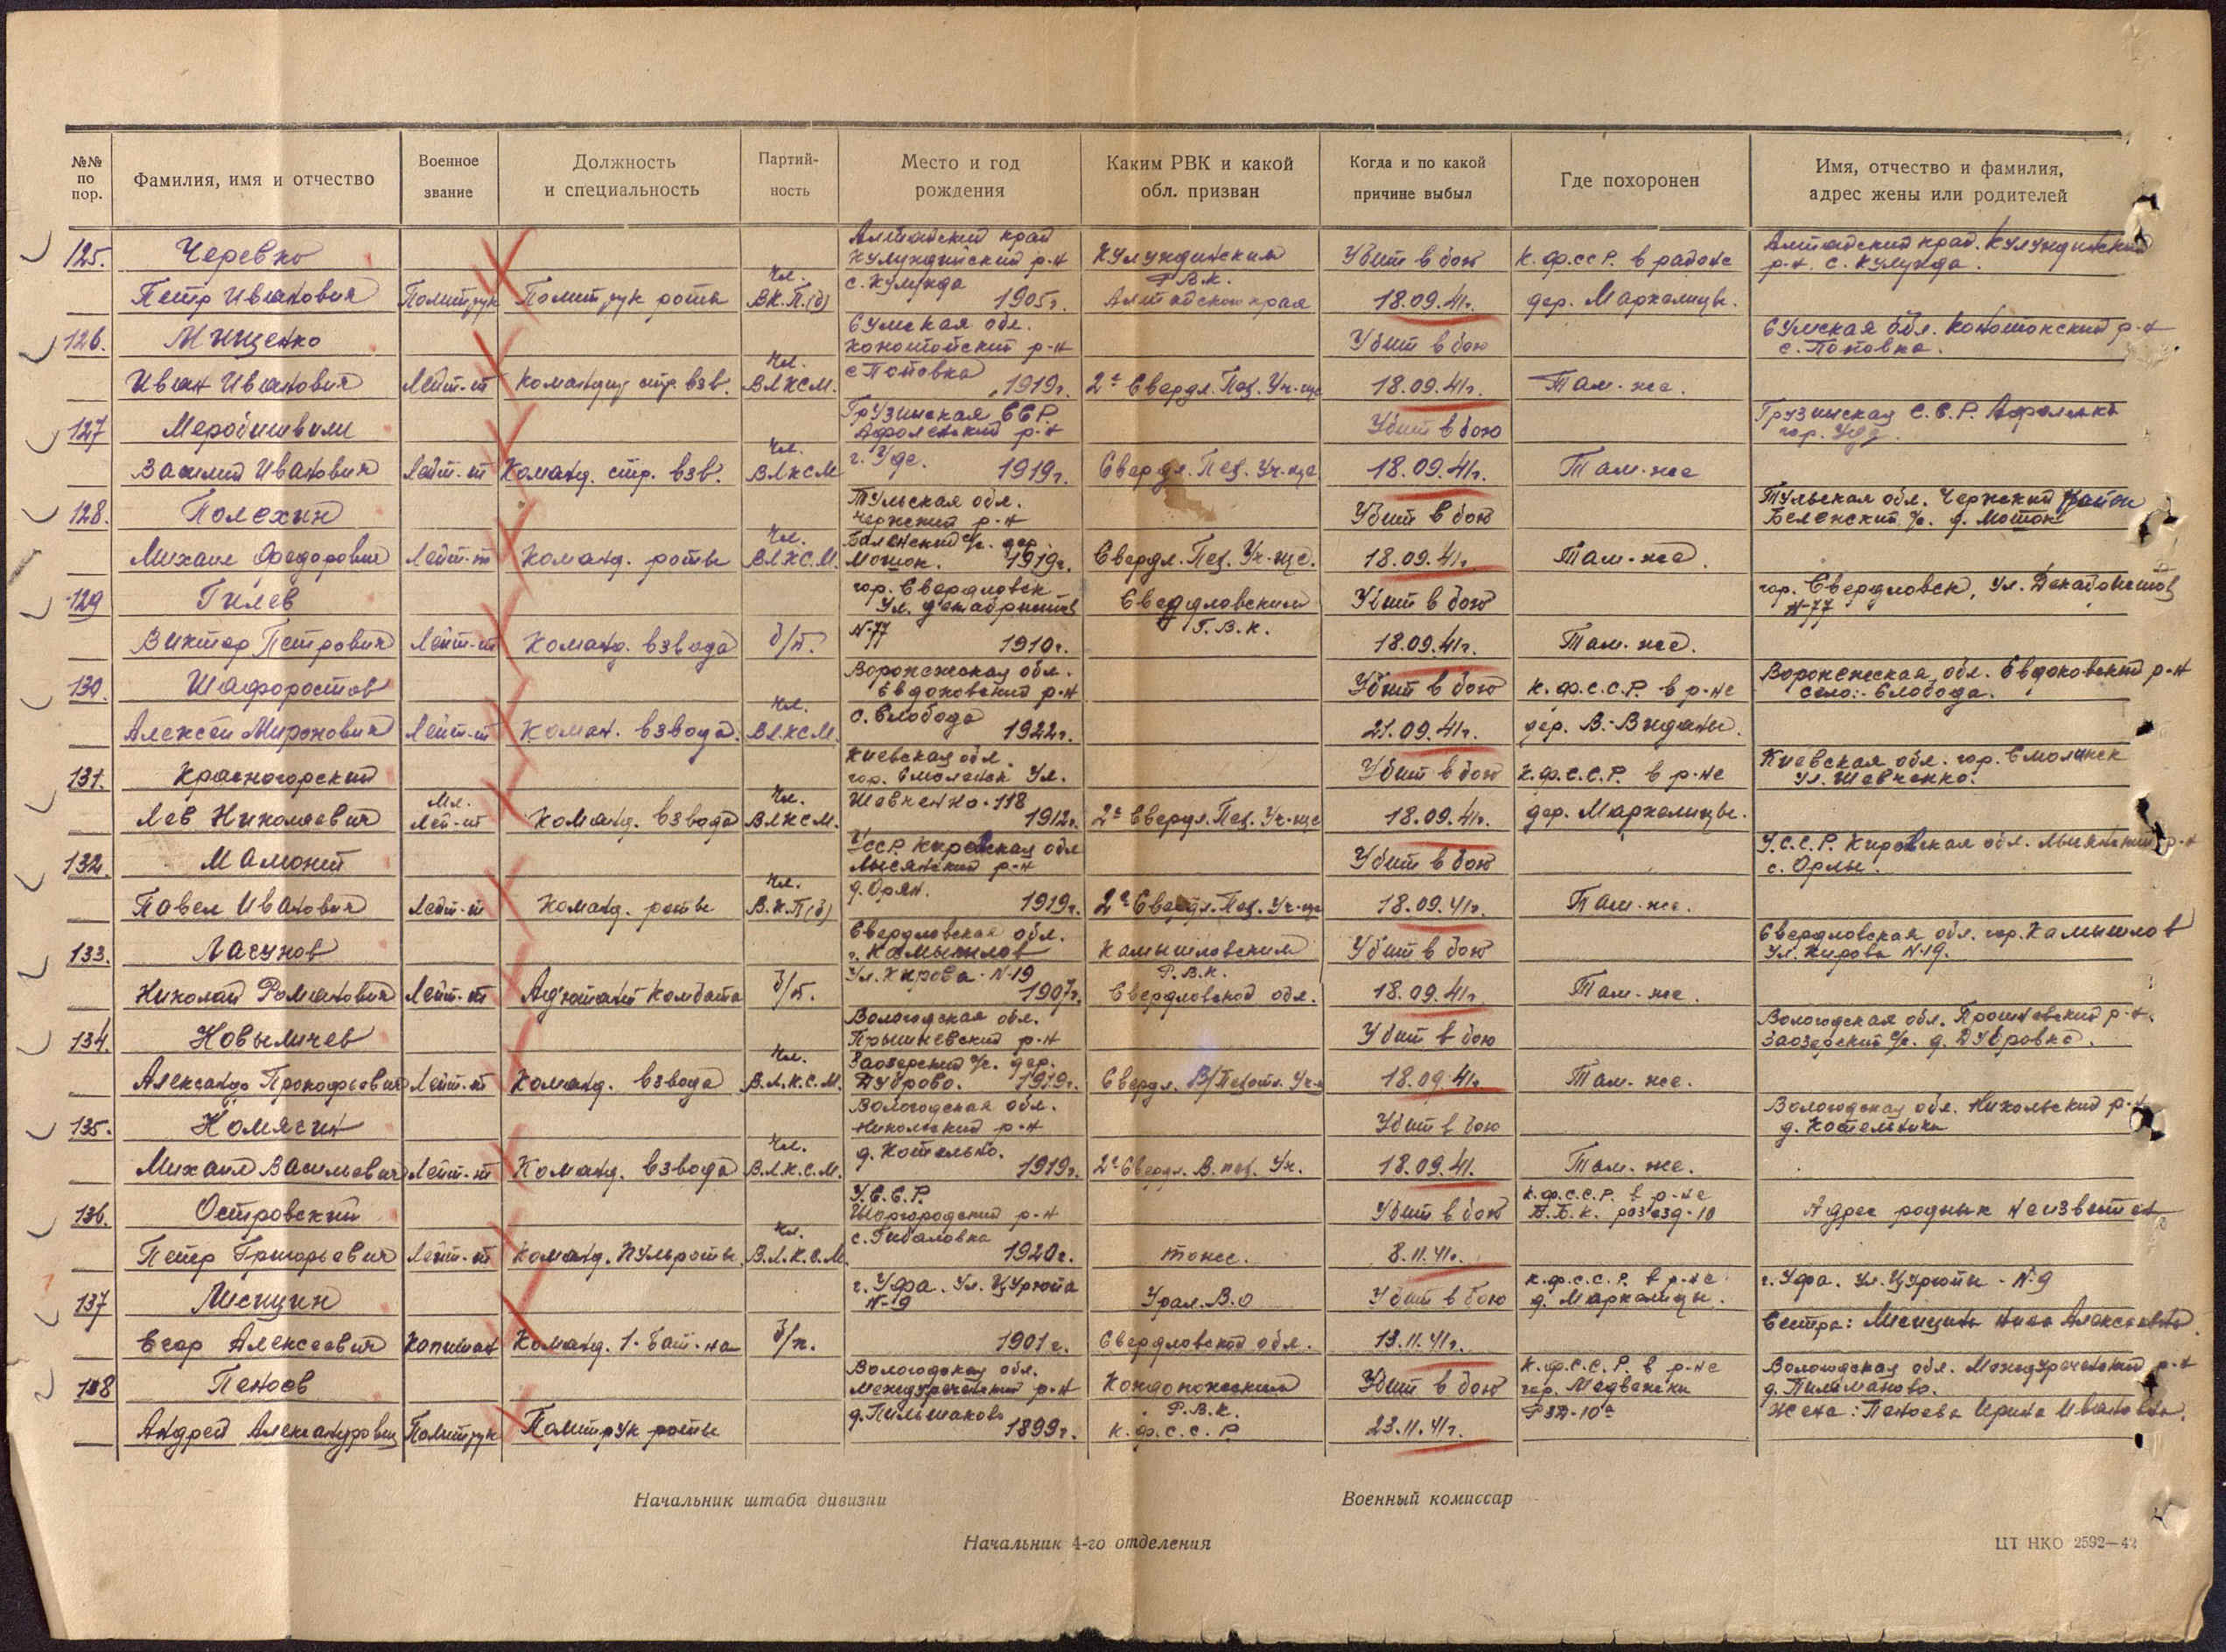 №№ по пор.
Фамилия, имя и отчество
Военное звание
Должность и специальность
Партий- ность
Место и год рождения
Каким РВК и какой обл. призван
Когда и по какой причине выбыл
Где похоронен
Имя, отчество и фамилия, адрес жены или родителей
125. Черевко Алтайский край Кулундинским Убит в бою К.Ф.ССР. в районе Алтайский край. Кулундинский
Кулундинский р-н Р.В.К. р-н. с. Кулунда.
Петр Иванович Политрук Политрук роты Чл. ВК.П.(б) с. Кулунда 1905г. Алтайского края 18.09.41г. дер. Маркелицы.
126. Мищенко Сумская обл. Убит в бою Сумская обл. Конотопский р-н
Конотопский р-н с. Поповка.
Иван Иванович Лейт-т Командир стр. взв. Чл. ВЛКСМ. с Поповка 1919г. 2е Свердл. Пех. Уч-ще 18.09.41г. Там-же.
127 Меробишвили Грузинская ССР. Убит в бою Грузинская С.С.Р.
р-н гор.
Василий Иванович Лейт-т Команд. стр. взв. Чл. ВЛКСМ г. Уде. 1919г. Свердл. Пех. Уч-ще 18.09.41г. Там-же
128. Полехин Тульская обл. Убит в бою Тульская обл. Чернский район
Чернский р-н Беленский с/с. д. Моток
Михаил Федорович Лейт-т Команд. роты Чл. ВЛКС.М. с/с. дер. 1919г. Свердл. Пех. Уч-ще. 18.09.41г. Там-же.
129 Гилев гор. Свердловск Свердловским Убит в бою гор. Свердловск, Ул. Декабристов
Ул. Декабристов Г.В.К. N-77
Виктор Петрович Лейт-т Команд. взвода б/п. N-77 1910г. 18.09.41г. Там-же.
130. Шафоростов Воронежская обл. Убит в бою К.Ф.С.С.Р. в р-не Воронежская обл. Евдаковский р-н
р-н село:- Слобода.
Алексей Миронович Лейт-т Коман. взвода. Чл. ВЛКСМ. с. Слобода 1922г. 21.09.41г. дер. В.-Видоны.
131. Красногорский Киевская обл. Убит в бою К.Ф.С.С.Р. в р-не Киевская обл. гор. Смолянск
гор. Ул. Ул. Шевченко.
Лев Николаевич Мл. Лей-т Команд. взвода Чл. ВЛКСМ. Шевченко-118 1912г. 2е Свердл. Пех. Уч-ще 18.09.41г. дер. Маркелицы.
132. Мамонит УССР. Кировская обл Убит в бою У.С.С.Р. Кировская обл.
Лысянский р-н с. Орлы.
Павел Иванович Лейт-т Команд. роты Чл. В.К.П(б) 1919г. 2е Свердл. Пех. Уч-ще 18.09.41г. Там-же.
133. Ласунов Свердловская обл. Камышловским Убит в бою Свердловская обл. гор. Камышлов
г. Камышлов Р.В.К. Ул. Кирова N-19.
Николай Романович Лейт-т Адъютант Комбата б/п. Ул. Кирова-N-19 1907г. Свердловской обл. 18.09.41г. Там-же.
134. Новыличев Вологодская обл. Убит в бою Вологодская обл.
р-н Заозерский с/с. д. Дубровка.
Александр Прокофьевич Лейт-т Команд. взвода Чл. В.Л.К.С.М. Заозерский с/с. дер. Дуброво. 1919г. Свердл. 18.09.41г. Там-же.
135. Комягин Вологодская обл. Убит в бою Вологодская обл. Никольский р-н
Никольский р-н д.
Михаил Васильевич Лейт-т Команд. взвода Чл. В.Л.К.С.М. д. 1919г. 2е Свердл. В. пех. Уч. 18.09.41. Там-же.
136. Островский У.С.С.Р. Убит в бою К.Ф.С.С.Р. в р-не Адрес родных неизвестен
Шаргородский р-н Б.Б.К. розезд-10
Петр Григорьевич Лейт-т Команд. Пульроты. Чл. В.Л.К.С.М. с. Гибаловка 1920г. тоже. 8.11.41г.
137 Мясищин г. Уфа. Ул. Цурюпа N-9 Урал.В.О Убит в бою К.Ф.С.С.Р. в р-не д. Маркелицы. г. Уфа. Ул. Цурюпы-N-9
Егор Алексеевич Капитан Команд. 1-Бат-на б/п. 1901г. Свердловской обл. 13.11.41г. Сестра:
138 Пеноев Вологодская обл. Кондопожским Убит в бою К.Ф.С.С.Р. в р-не Вологодская обл. Междуреченский р-н
Междуреченский р-н Р.В.К. гор. д.
Андрей Александрович Политрук Политрук роты д. 1899г. К.Ф.С.С.Р 23.11.41г. РЗД-10а Жена: Пеноева Ирина Ивановна.
Начальник штаба дивизии
Военный комиссар
Начальник 4-го отделения
ЦТ НКО 2592—42